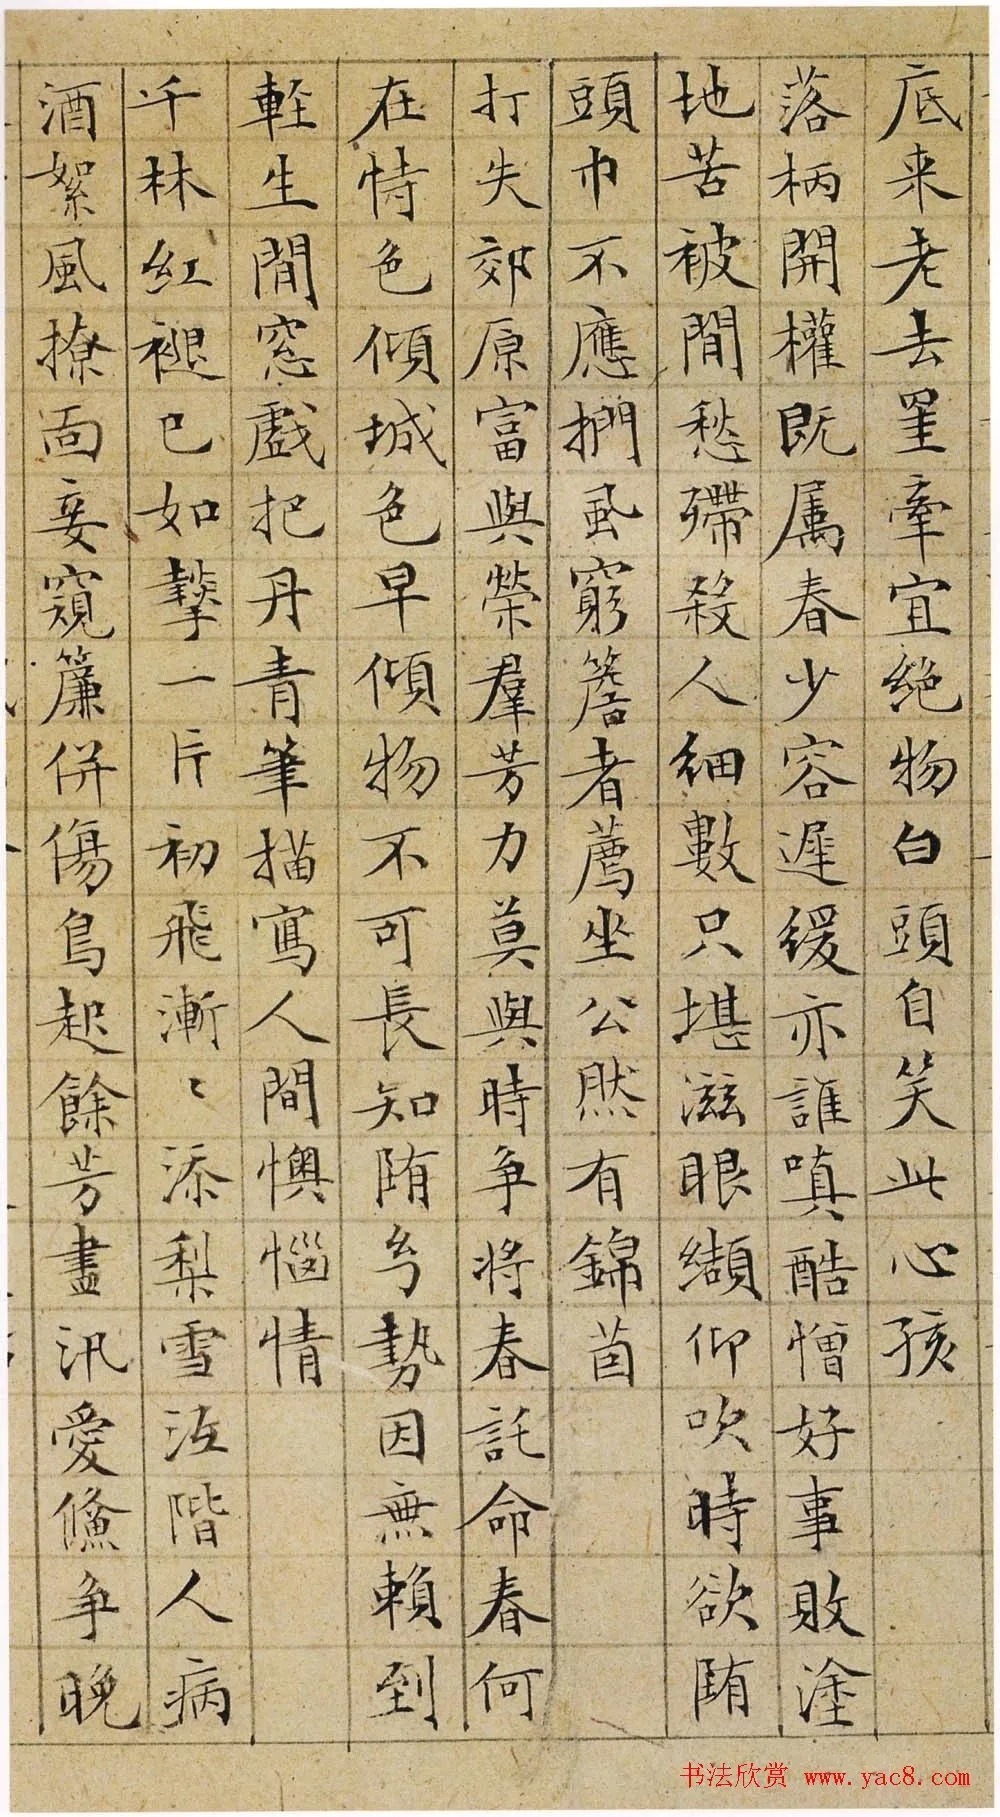 底来老去罣牽宜絶物白頭自笑此心孩
落柄開權既属春少容遲緩亦誰嗔酷憎好事敗塗
地苦被閒愁殢殺人細數只堪滋眼纈仰吹時欲陏
頭巾不應捫虱窮簷者薦坐公然有錦茵
打失郊原富與榮羣芳力莫與時争将春託命春何
在恃色傾城色早傾物不可長知陏幻勢因無賴到
輕生閒窓戲把丹青筆描寫人間懊惱情
千林紅褪已如一片初飛漸〻添梨雪沍階人病
酒絮風撩面妾窺簾併傷鳥起餘芳盡汎愛鯈争晚
书法欣赏 www.yac8.com